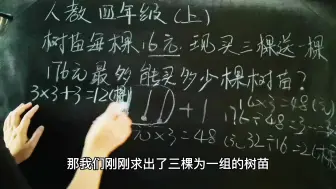 人教四年级(上)
树苗每棵16元 现买三棵送一棵
176元最多能买多少棵树苗?
3×3+3=12(棵)
16×3=48(元)
176÷48=3
32÷16=2(棵)
那我们刚刚求出了三棵为一组的树苗